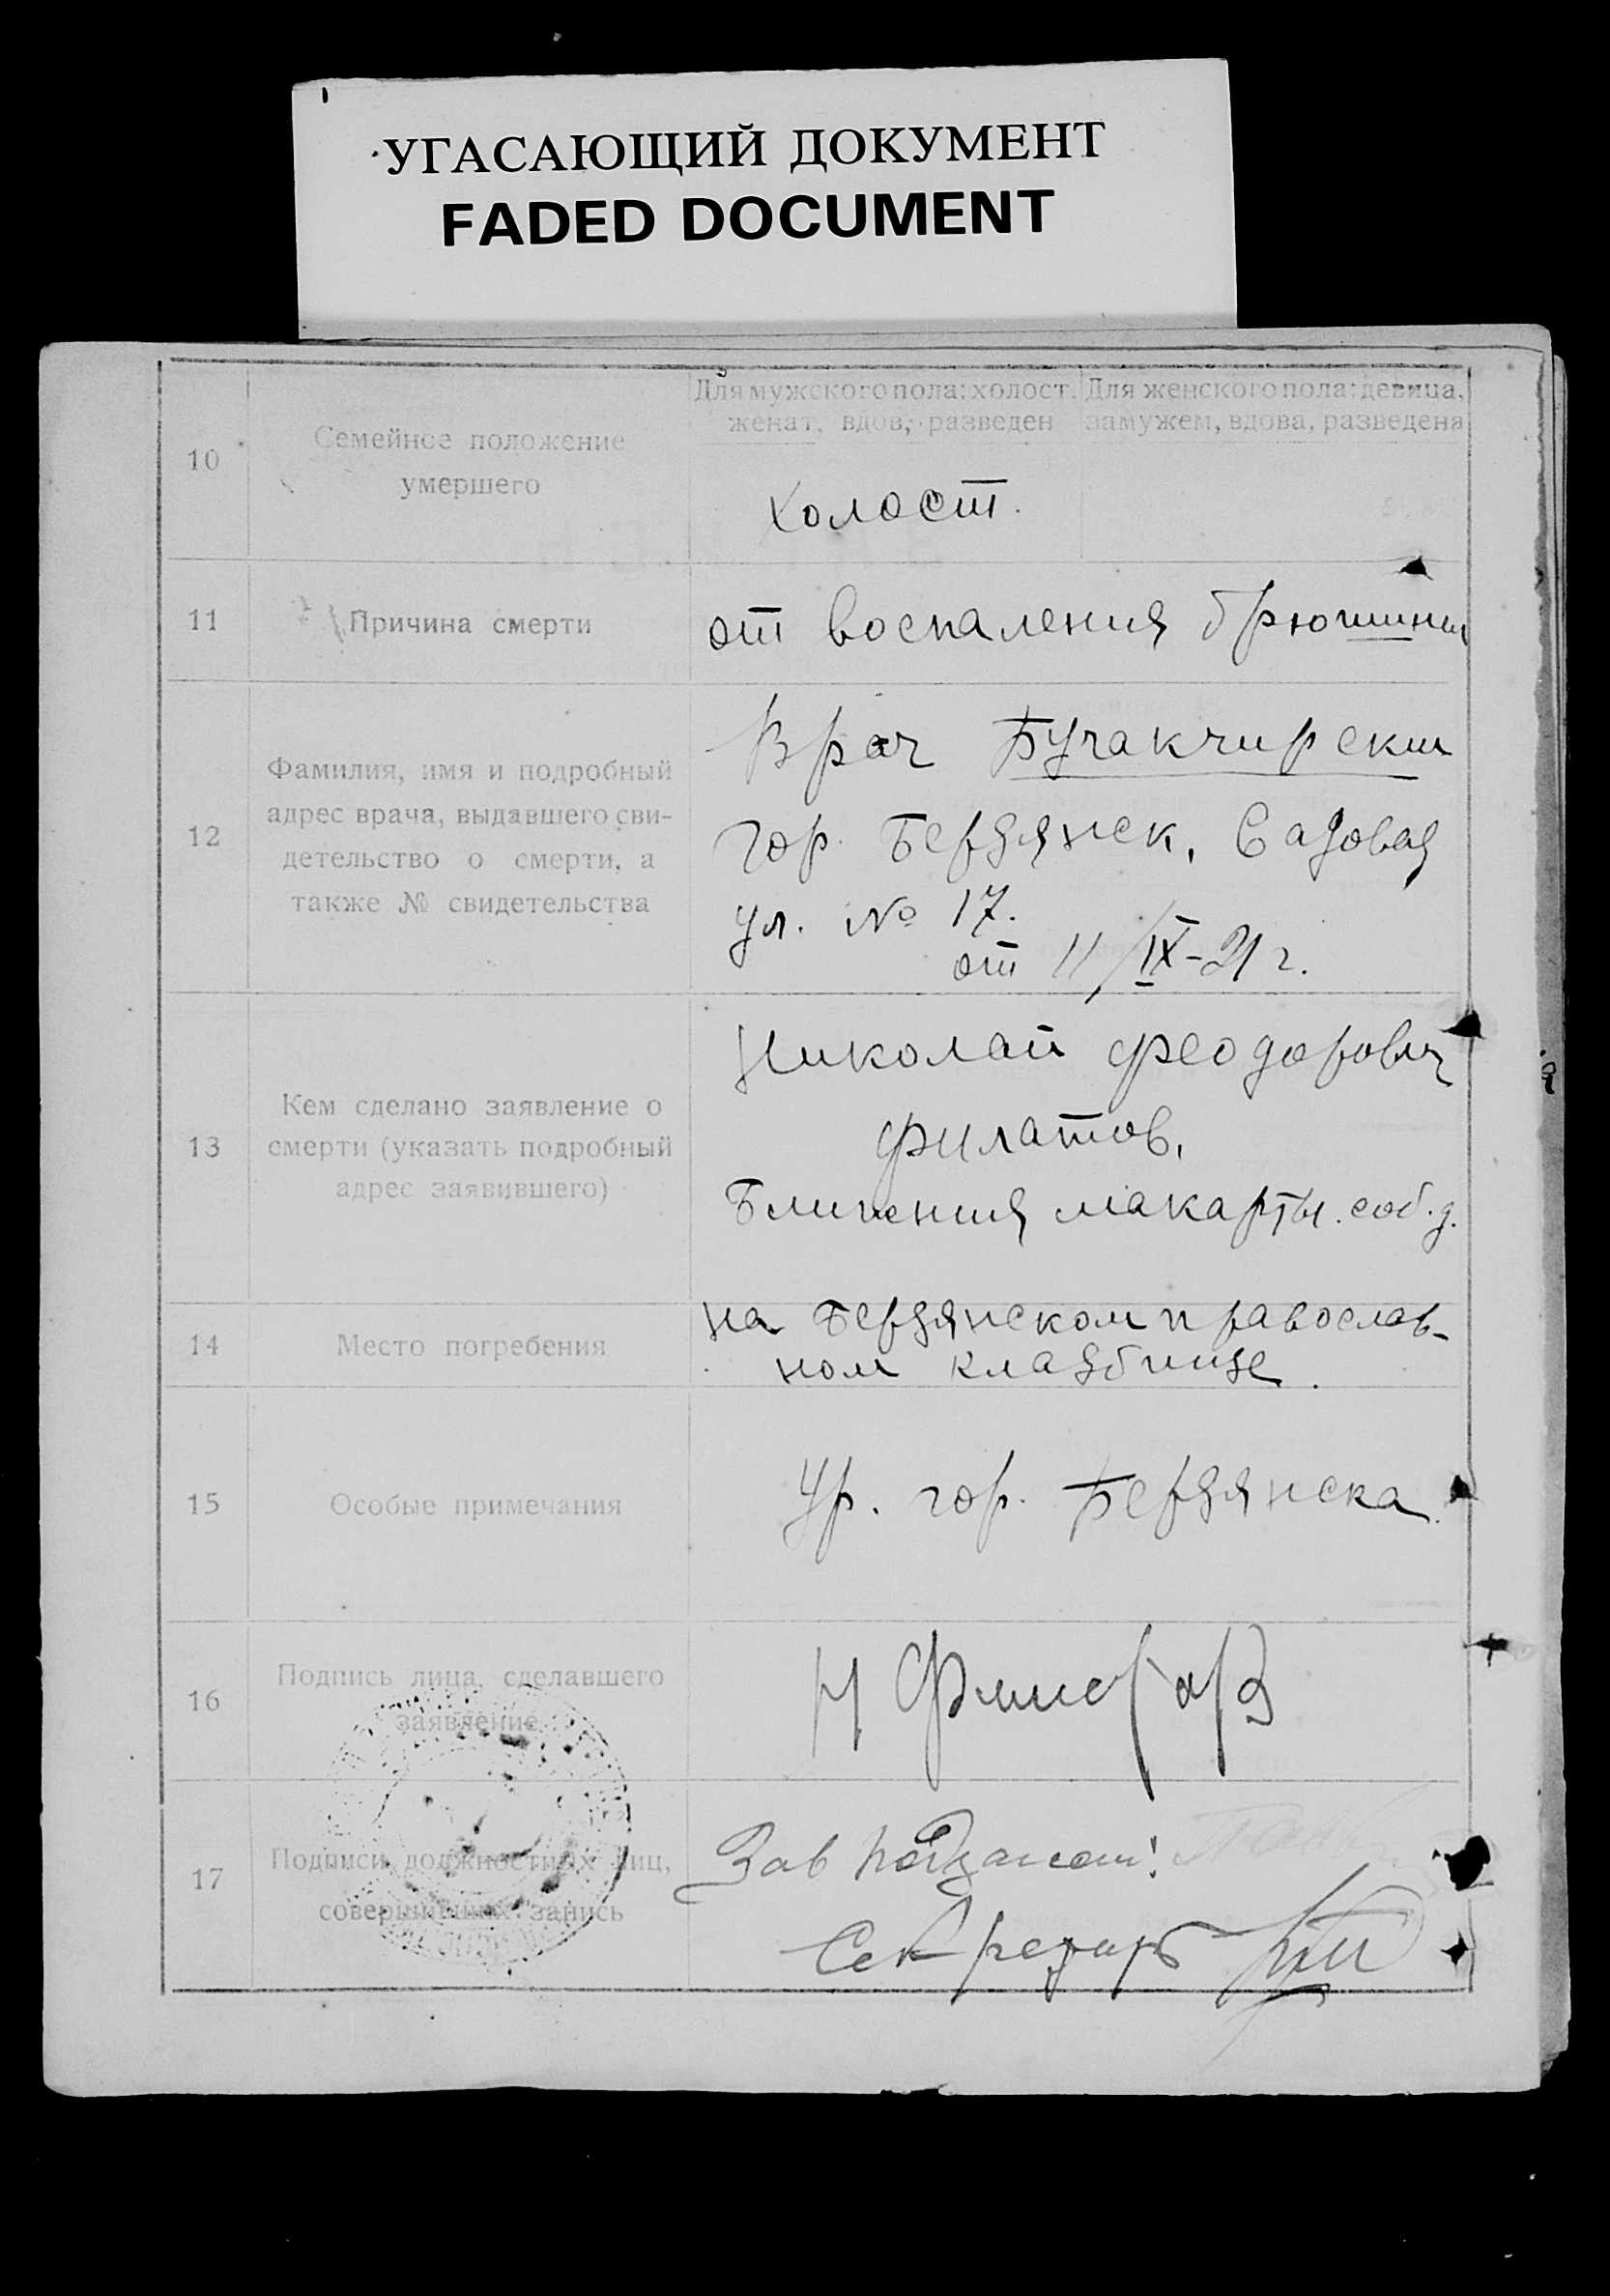 УГАСАЮЩИЙ ДОКУМЕНТ
FADED DOCUMENT
10
Семейное положение
умершего
Для мужского пола: холост.
женат, вдов, разведен
Для женского пола: девица,
замужем, вдова, разведена
холост.
11
Причина смерти
от воспаления брюшины
12
Фамилия, имя и подробный
адрес врача, выдавшего сви-
детельство о смерти, а
также № свидетельства
Врач
гор. Бердянск, Садовая
ул. № 17.
от 11/IX-21 г.
13
Кем сделано заявление о
смерти (указать подробный
адрес заявившего)
Николай Феодорович
Филатов,
макорты. соб. д.
14
Место погребения
на Бердянском православ-
ном кладбище.
15
Особые примечания
Ур. гор. Бердянска.
16
Подпись лица, сделавшего
заявление
17
Подписи должностных лиц,
совершивших запись
Зав
Секретарь